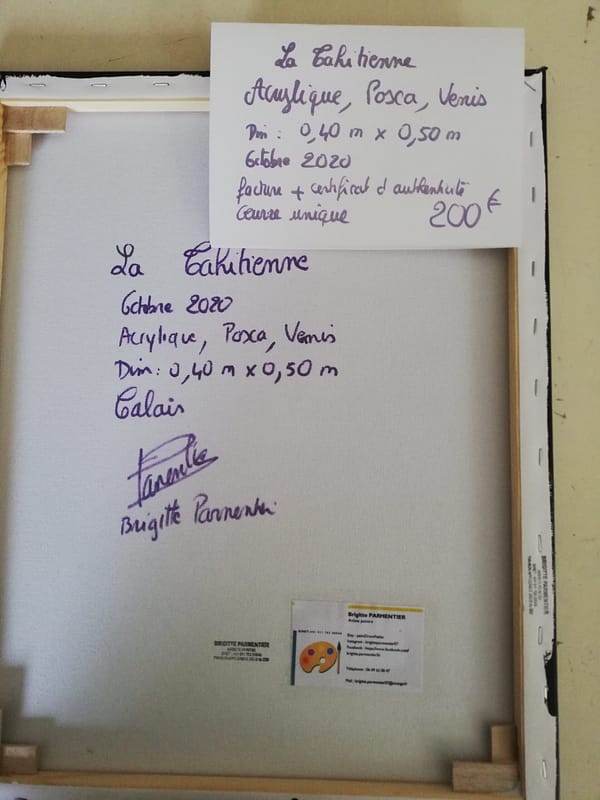 La Tahitienne
Acrylique, Posca, Vernis
Dim : 0,40 m x 0,50 m
Octobre 2020
facture + certificat d'authenticité
Oeuvre unique 200€
La Tahitienne
Octobre 2020
Acrylique, Posca, Vernis
Dim : 0,40 m x 0,50 m
Calais
Parmentier
Brigitte Parmentier
BRIGITTE PARMENTIER
Brigitte PARMENTIER
Artiste peintre